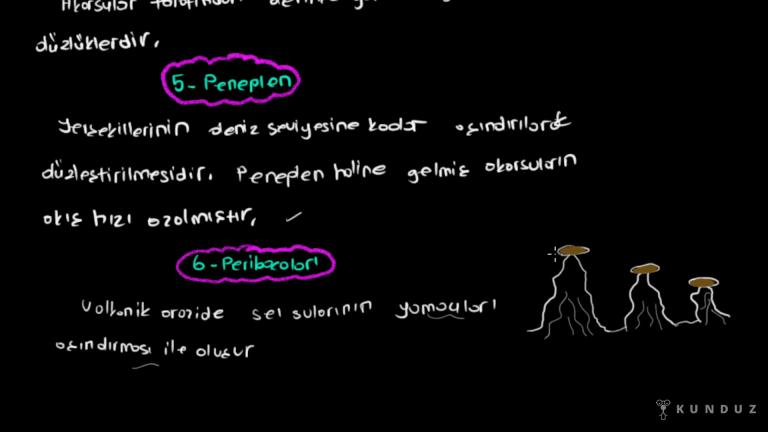 Akarsular tarafından
düzlüklerdir.
5- Peneplen
Yerşekillerinin deniz seviyesine kadar aşındırılarak
düzleştirilmesidir. Peneplen haline gelmiş akarsuların
akış hızı azalmıştır.
6- Peribacaları
Volkanik arazide sel sularının yamaçları
aşındırması ile oluşur
KUNDUZ